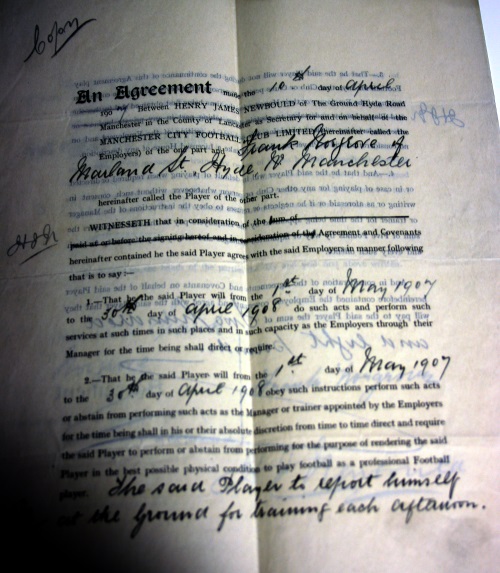 Copy
An Agreement made the 10th day of April
190 7 Between HENRY JAMES NEWBOULD of The Ground Hyde Road
Manchester in the County of Lancaster as Secretary for and on behalf of the
MANCHESTER CITY FOOTBALL CLUB LIMITED (hereinafter called the
Employers) of the one part and Frank Booth of
Marland St. Hyde Nr Manchester
hereinafter called the Player of the other part.
WITNESSETH that in consideration of the sum of
paid at or before the signing hereof and in consideration of the Agreement and Covenants
hereinafter contained he the said Player agrees with the said Employers in manner following
that is to say :—
1.—That he the said Player will from the 1st day of May 1907
to the 30th day of April 1908 do such acts and perform such
services at such times in such places and in such capacity as the Employers through their
Manager for the time being shall direct or require.
2.—That he the said Player will from the 1st day of May 1907
to the 30th day of April 1908 obey such instructions perform such acts
or abstain from performing such acts as the Manager or trainer appointed by the Employers
for the time being shall in his or their absolute discretion from time to time direct and require
the said Player to perform or abstain from performing for the purpose of rendering the said
Player in the best possible physical condition to play football as a professional Football
player. The said Player to report himself
at the Ground for training each afternoon.